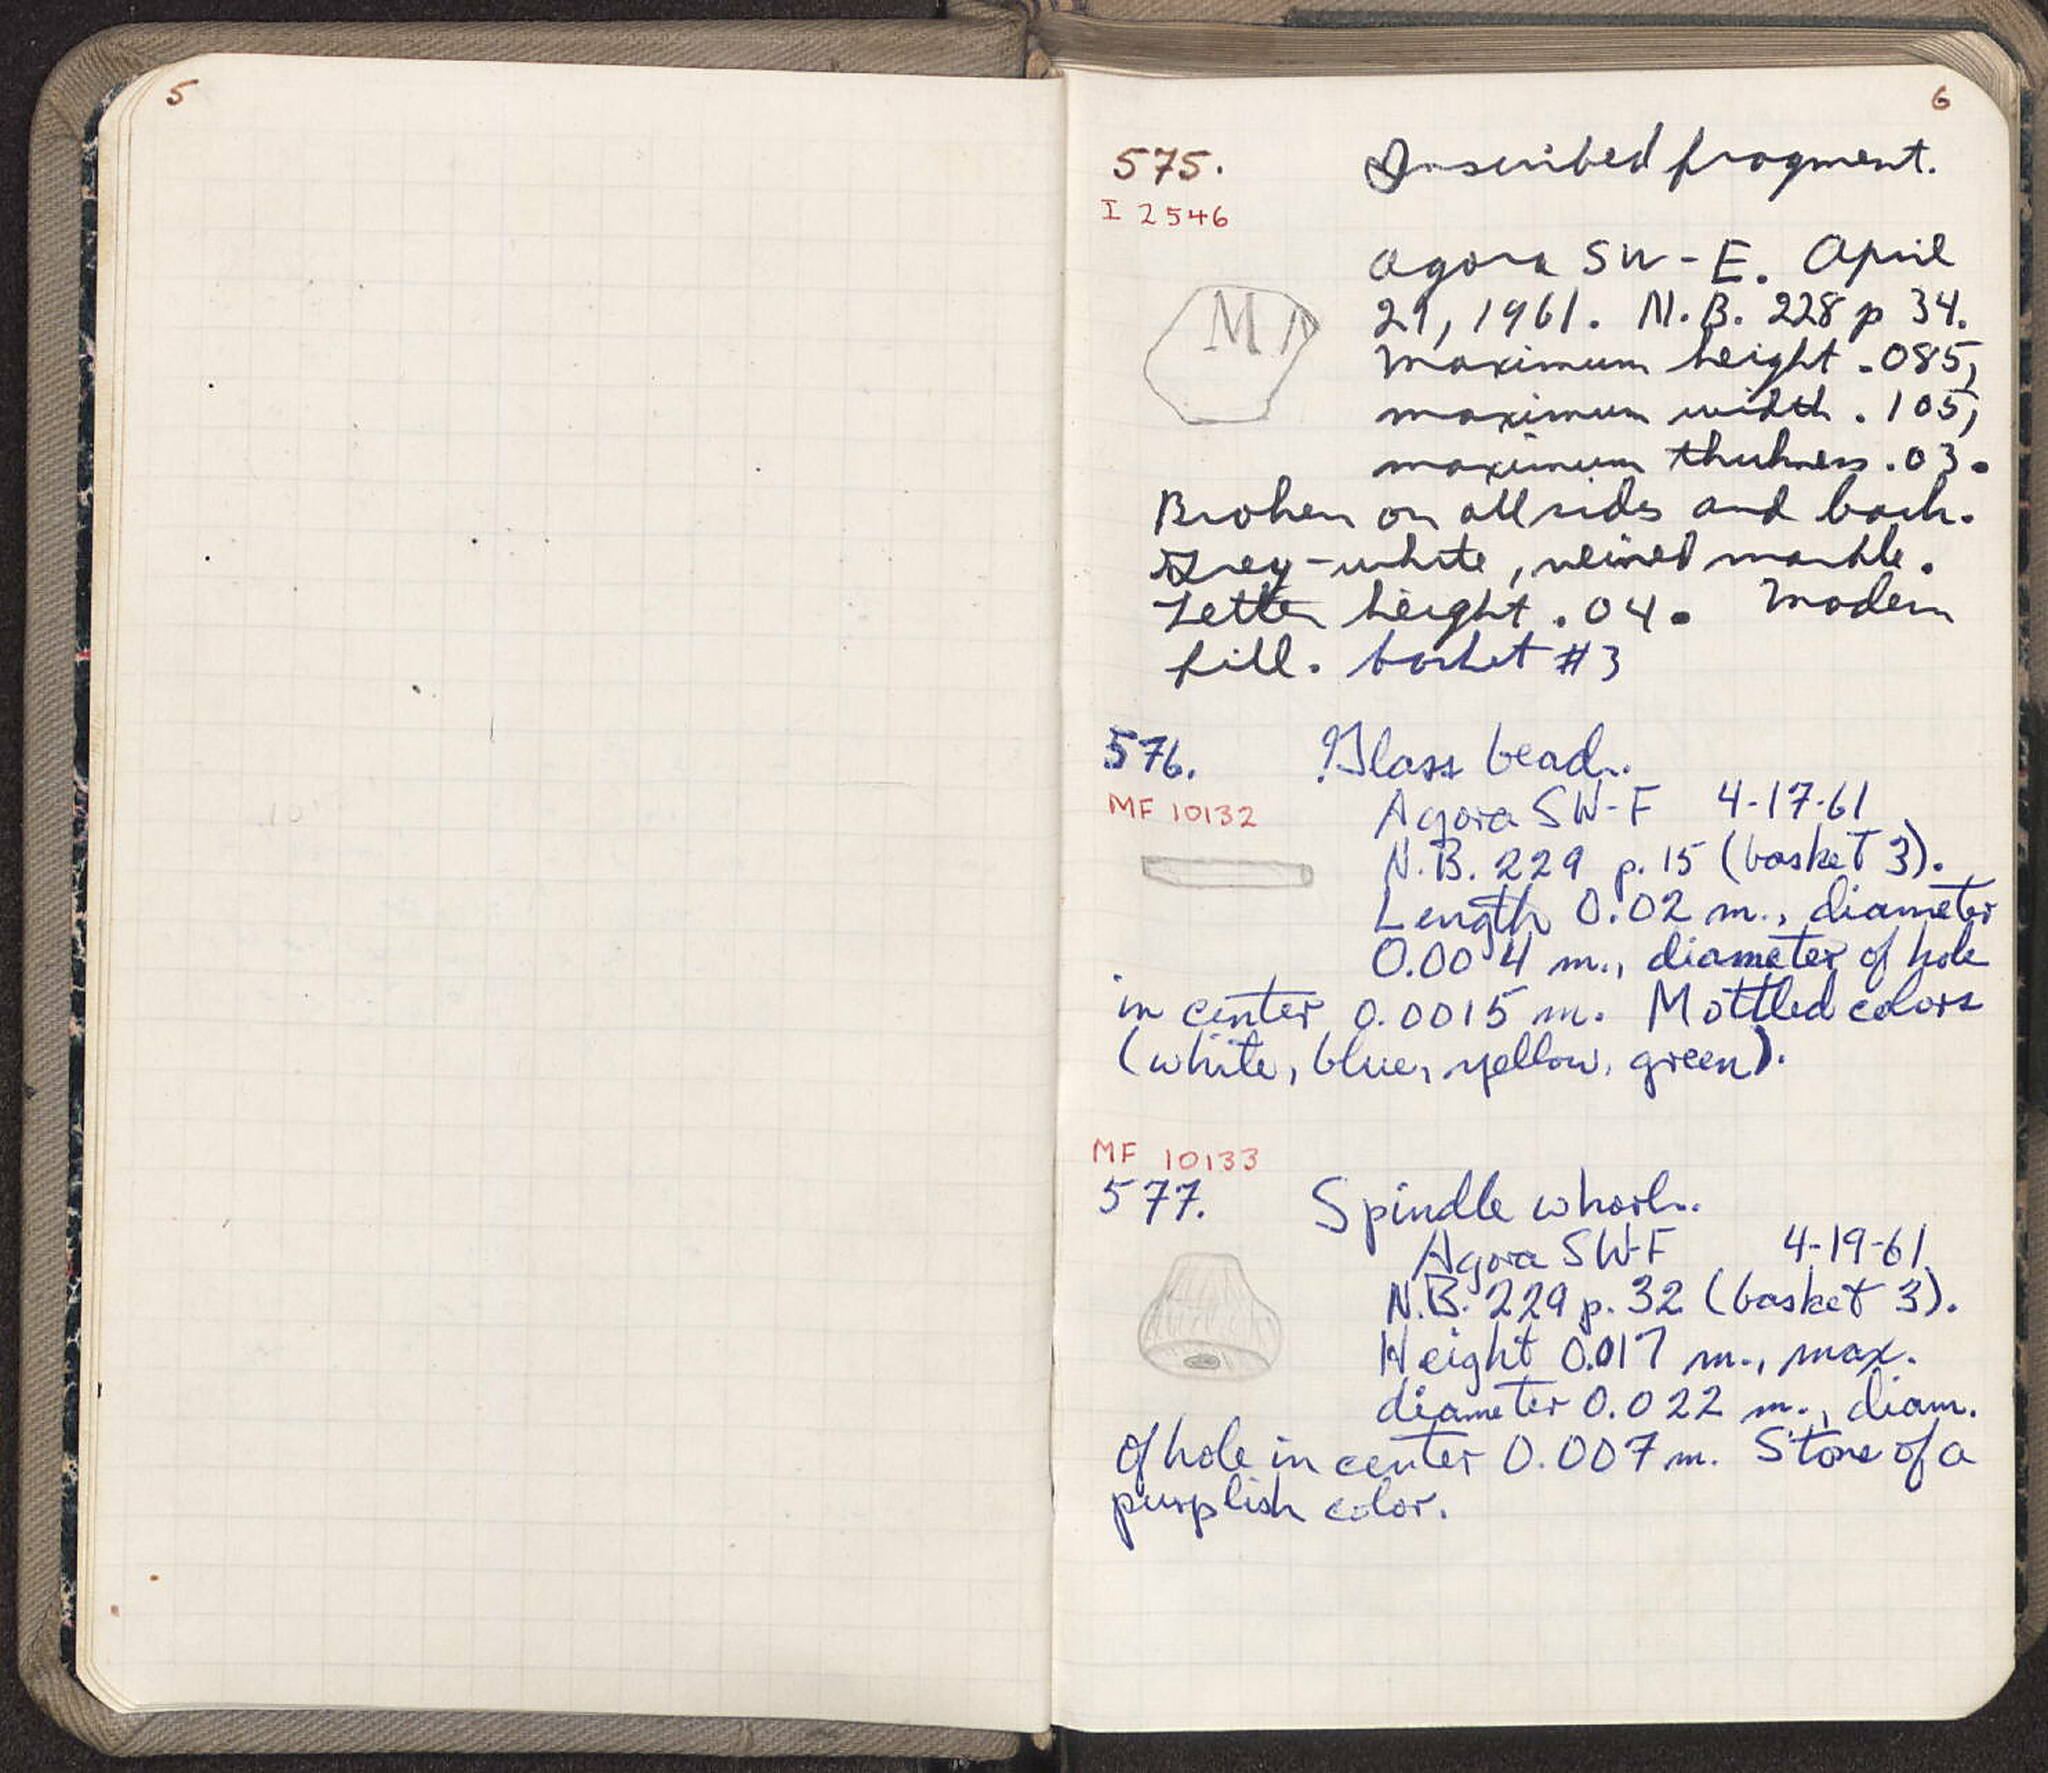 5
6
575.
Inscribed fragment.
I 2546
Agora SW-E. April
29, 1961. N.B. 228 p 34.
M
Maximum height .085,
maximum width .105,
maximum thickness .03.
Broken on all sides and back.
Grey-white, veined marble.
Letter height .04. Modern
fill. basket #3
576.
Glass bead.
MF 10132
Agora SW-F 4-17-61
N.B. 229 p. 15 (basket 3).
Length 0.02 m., diameter
0.004 m., diameter of hole
in center 0.0015 m. Mottled colors
(white, blue, yellow, green).
MF 10133
577.
Spindle whorl.
Agora SW-F 4-19-61
N.B. 229 p. 32 (basket 3).
Height 0.017 m., max.
diameter 0.022 m., diam.
of hole in center 0.007 m. Stone of a
purplish color.